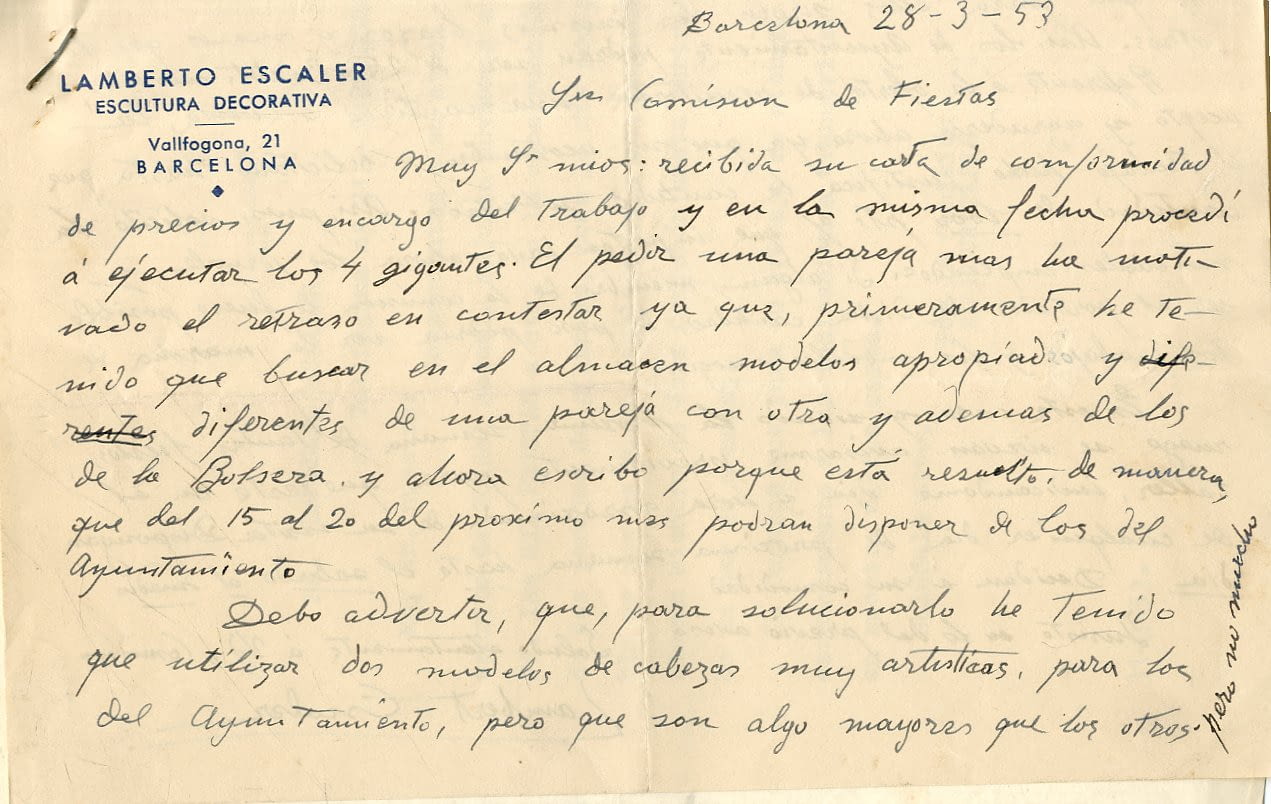 Barcelona 28-3-53
LAMBERTO ESCALER
ESCULTURA DECORATIVA
Vallfogona, 21
BARCELONA
Srs Comision de Fiestas
Muy Sr mios: recibida su carta de comformidad
de precios y encargo del Trabajo y en la misma fecha procedí
á ejecutar los 4 gigantes. El pedir una pareja mas ha moti-
vado el retraso en contestar ya que, primeramente he te-
nido que buscar en el almacen modelos apropiados y dife-
rentes diferentes de una pareja con otra y ademas de los
de la Bolsera. y ahora escribo porque está resuelto, de manera,
que del 15 al 20 del proximo mes podran disponer de los del
Ayuntamiento
Debo advertir, que, para solucionarlo he Tenido
que utilizar dos modelos de cabezas muy artisticas, para los
del Ayuntamiento, pero que son algo mayores que los otros.
pero no mucho